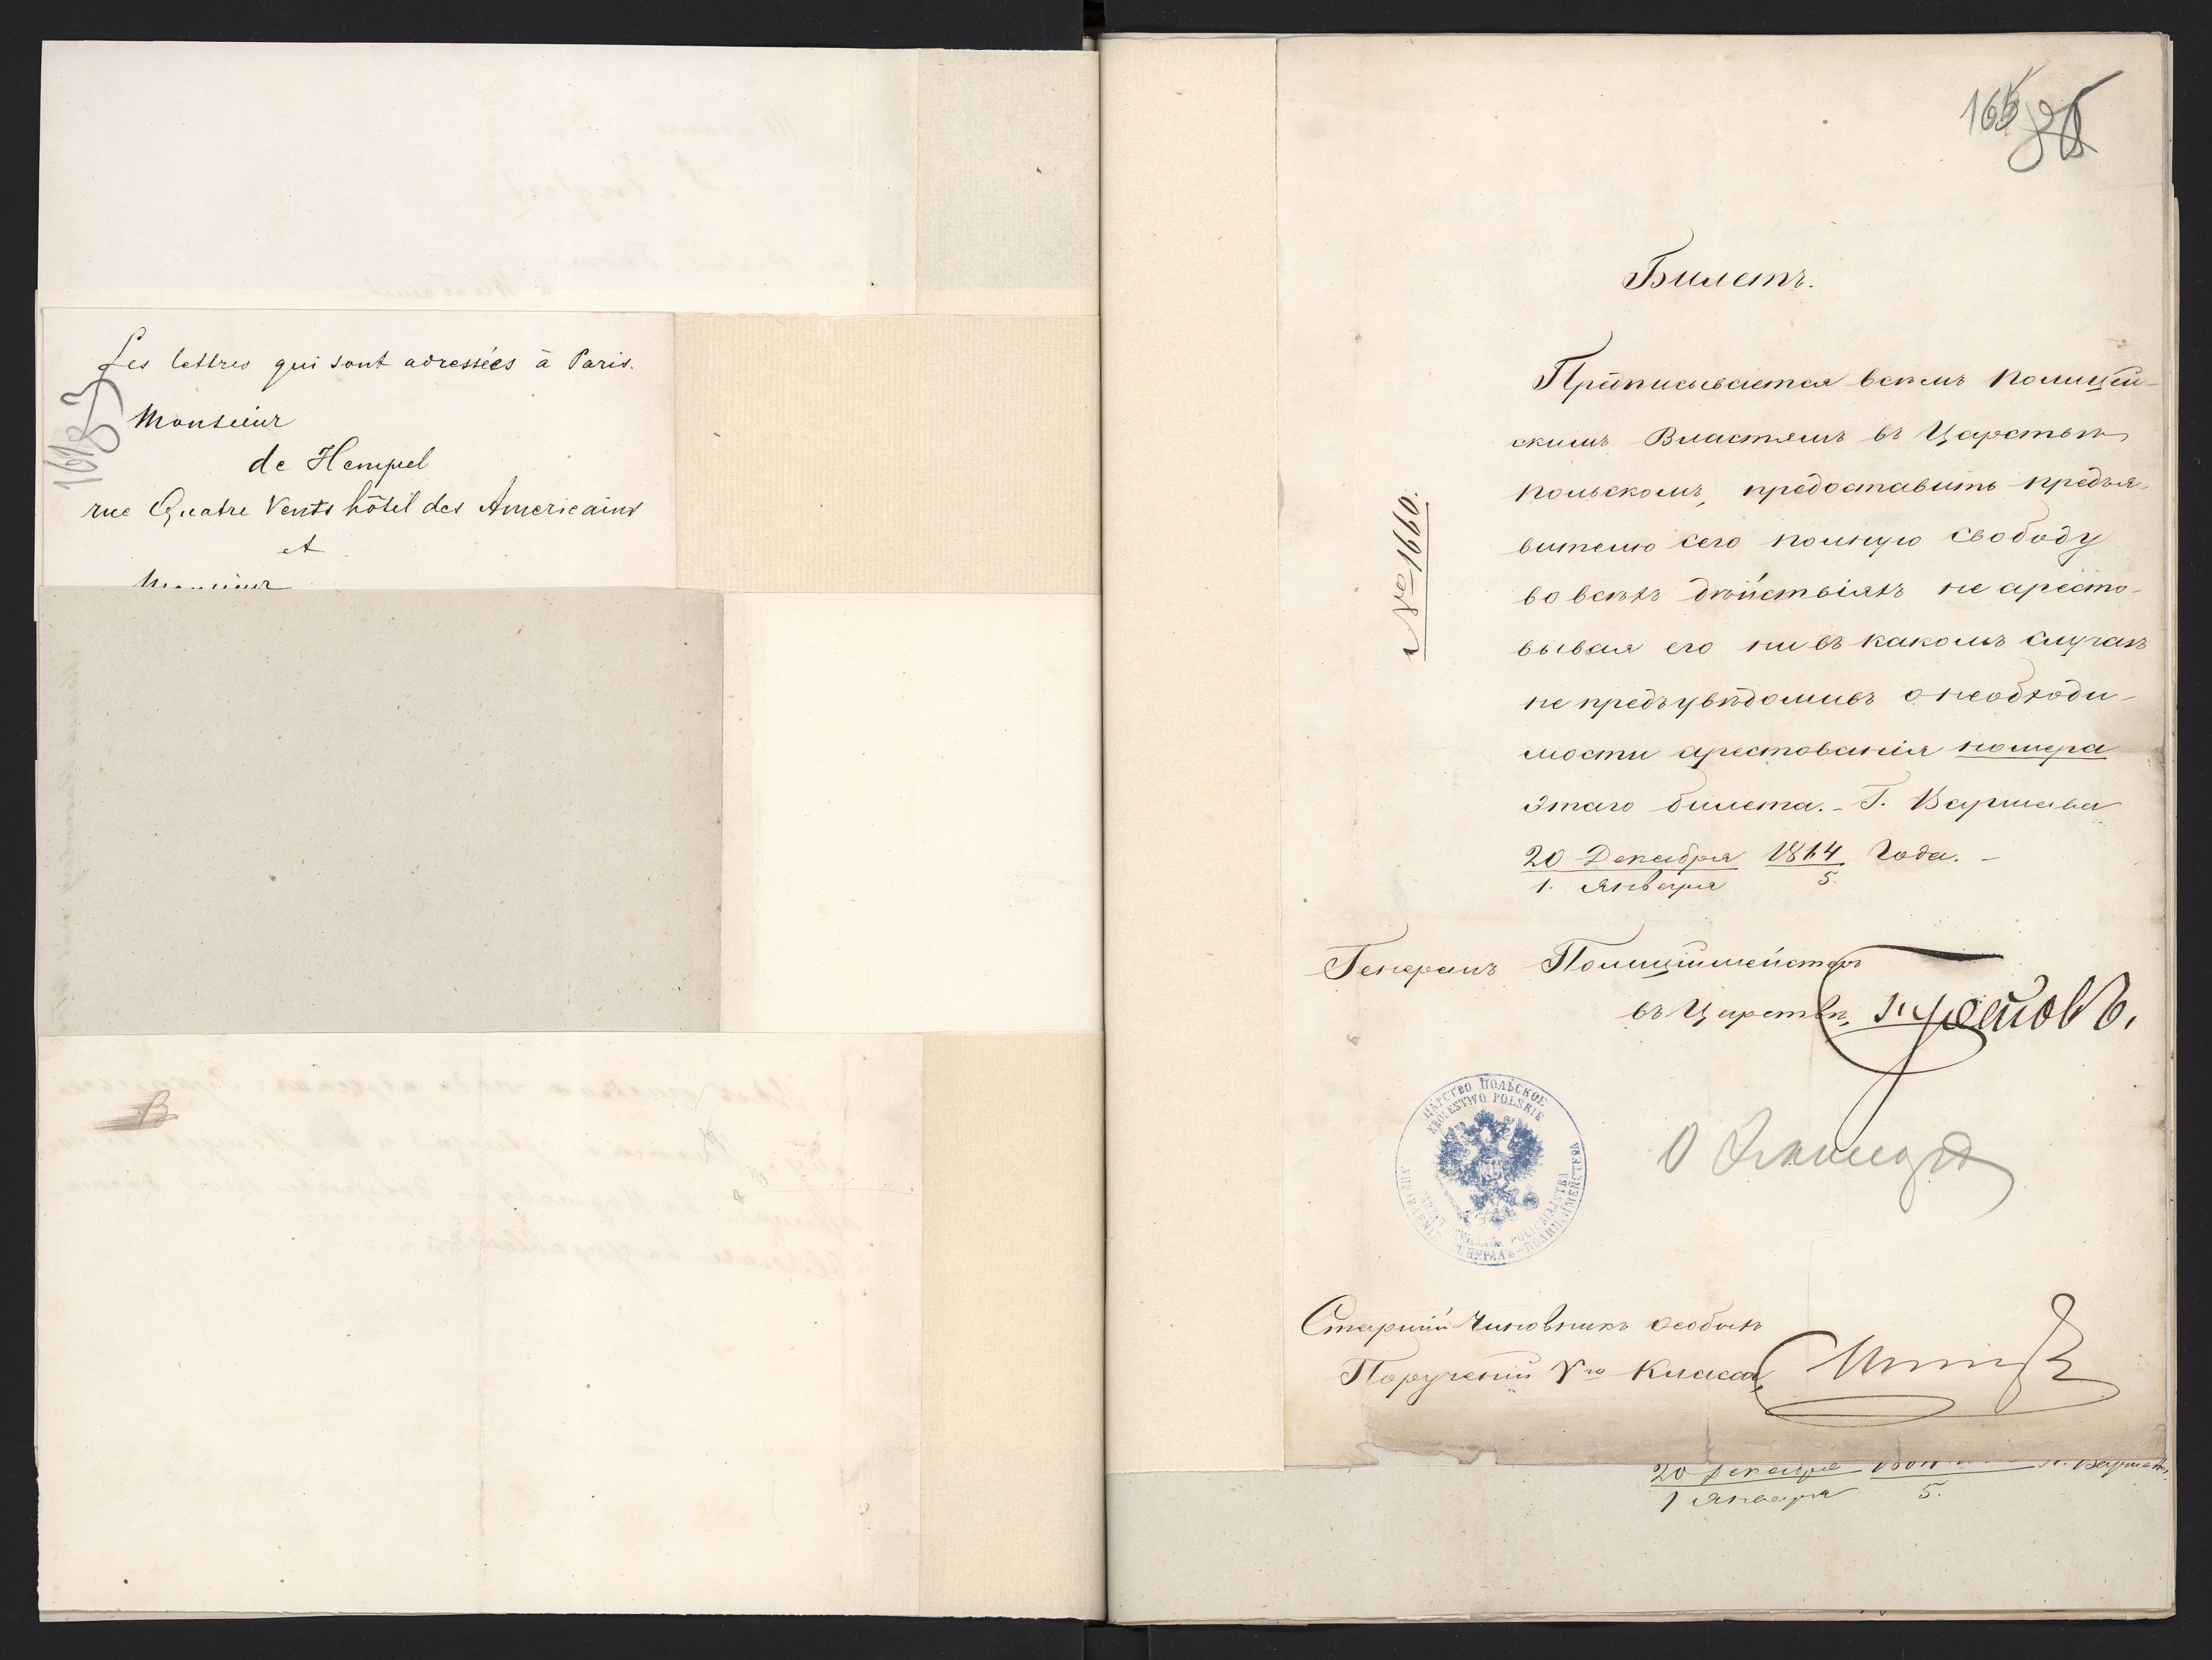 Les lettres qui sont adressées à Paris.
Monsieur
de Hempel
rue Quatre Vents hôtel des Americains
et
Monsieur
165
Билетъ.
№ 1660.
Предписывается всемъ Полицей-
скимъ Властямъ въ Царствѣ
Польскомъ, предоставить предъя-
вителю сего полную свободу
во всѣхъ дѣйствіяхъ не аресто-
вывая его ни въ какомъ случаѣ
не предъувѣдомивъ о необходи-
мости арестованія номера
этаго билета. - Г. Варшава
20 Декабря 1864 года. -
1. Января 5.
Генералъ Полиціймейстеръ
въ Царствѣ, Треповъ.
ЦАРСТВО ПОЛЬСКОЕ
KRÓLESTWO POLSKIE
УПРАВЛЕНІЕ ГЕНЕРАЛЪ-ПОЛИЦІЙМЕЙСТЕРА
Старшій Чиновникъ особыхъ
Порученій Vго Класса
20 Декабря г. Варшава
1 Января 5.